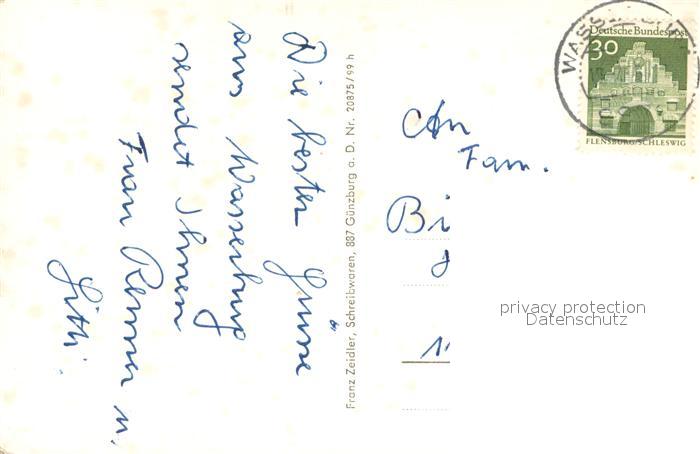 Die besten Grüsse
aus Wasserburg
sendet Ihnen
Frau Remmer u.
Gitti.
Franz Zeidler, Schreibwaren, 887 Günzburg a. D. Nr. 20875/99 h
An
Fam.
Bi
Deutsche Bundespost
30
FLENSBURG/SCHLESWIG
privacy protection
Datenschutz